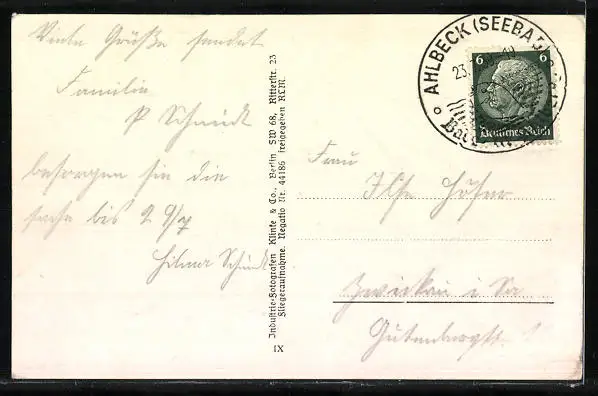 Viele Grüße sendet
Familie
P Schmidt
besorgen sie die
sache bis 29/7
Hilmar Schmidt
Industrie-Fotografen Klinke & Co., Berlin SW 68, Ritterstr. 23
Fliegeraufnahme. Negativ Nr. 44186 freigegeben RLM.
IX
AHLBECK (SEEBAD)
23.
6 6
Deutsches Reich
Frau
Ilse Höfer
Zwickau i Sa
Gutenbergstr.